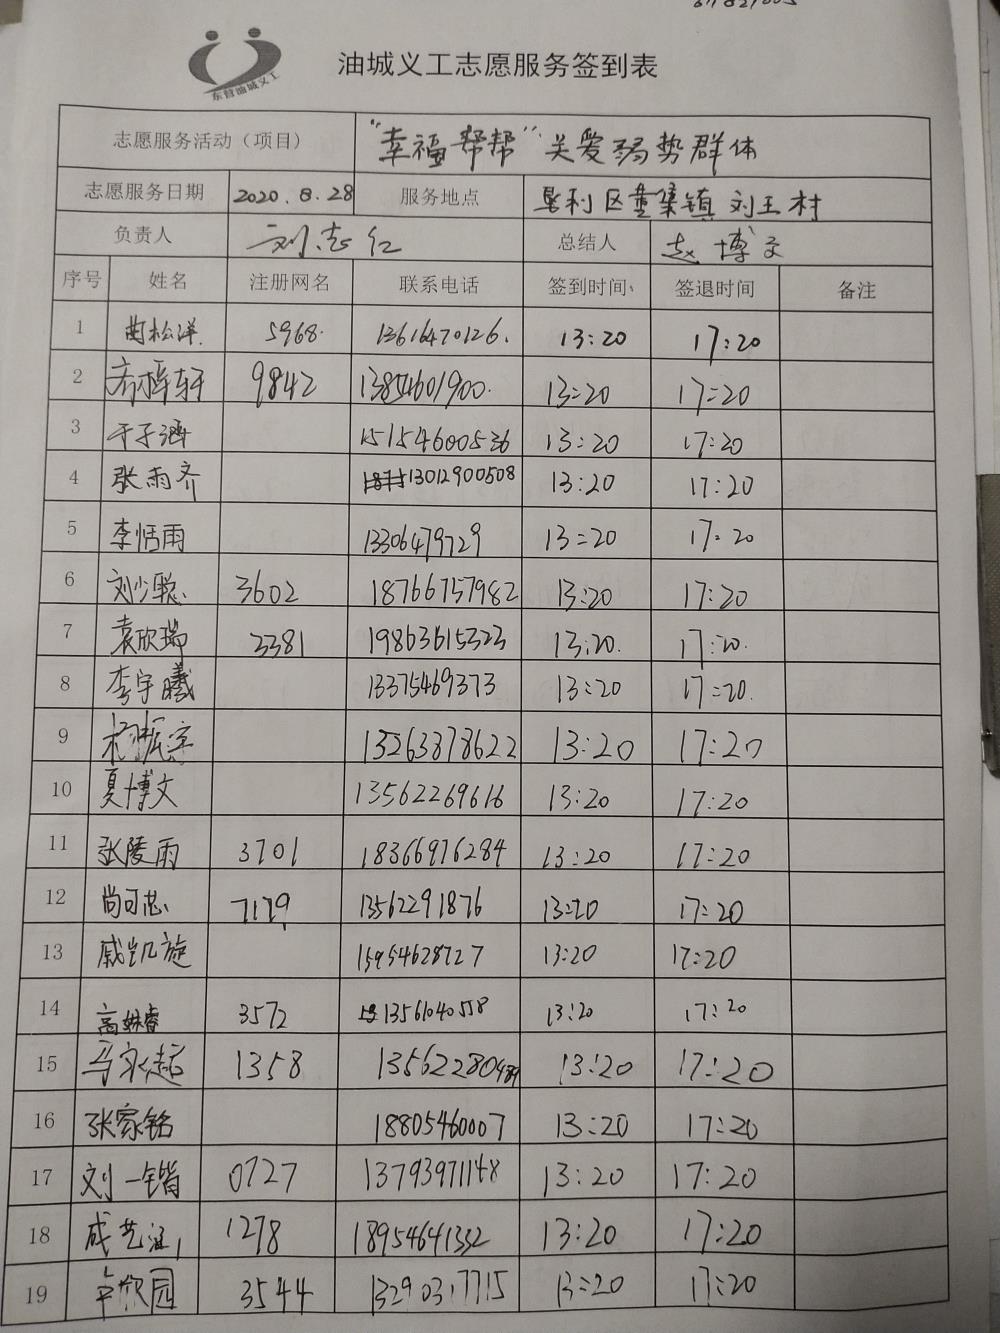 东营油城义工
油城义工志愿服务签到表
志愿服务活动（项目） “幸福帮帮”关爱弱势群体
志愿服务日期 2020.8.28 服务地点 垦利区董集镇 刘王村
负责人 刘志红 总结人 赵博文
序号 姓名 注册网名 联系电话 签到时间 签退时间 备注
1 曲松洋 5968 13616470126 13:20 17:20
2 梓轩 9842 13854601900 13:20 17:20
3 于子涵 15154600536 13:20 17:20
4 张雨齐 13012900508 13:20 17:20
5 李恬雨 13306479729 13:20 17:20
6 刘少聪 3602 18766757982 13:20 17:20
7 袁欣瑞 3381 19863615323 13:20 17:20
8 李宇曦 13375469373 13:20 17:20
9 杨振宇 13263878622 13:20 17:20
10 夏博文 13562269616 13:20 17:20
11 张陵雨 3701 18366976284 13:20 17:20
12 尚可 7179 13562291876 13:20 17:20
13 戚凯旋 15954628727 13:20 17:20
14 高姝睿 3572 13561040558 13:20 17:20
15 马永超 1358 13562280489 13:20 17:20
16 张家铭 18805460007 13:20 17:20
17 刘一锴 0727 13793971148 13:20 17:20
18 成艺涵 1278 18954641332 13:20 17:20
19 欣园 3544 13290317715 13:20 17:20